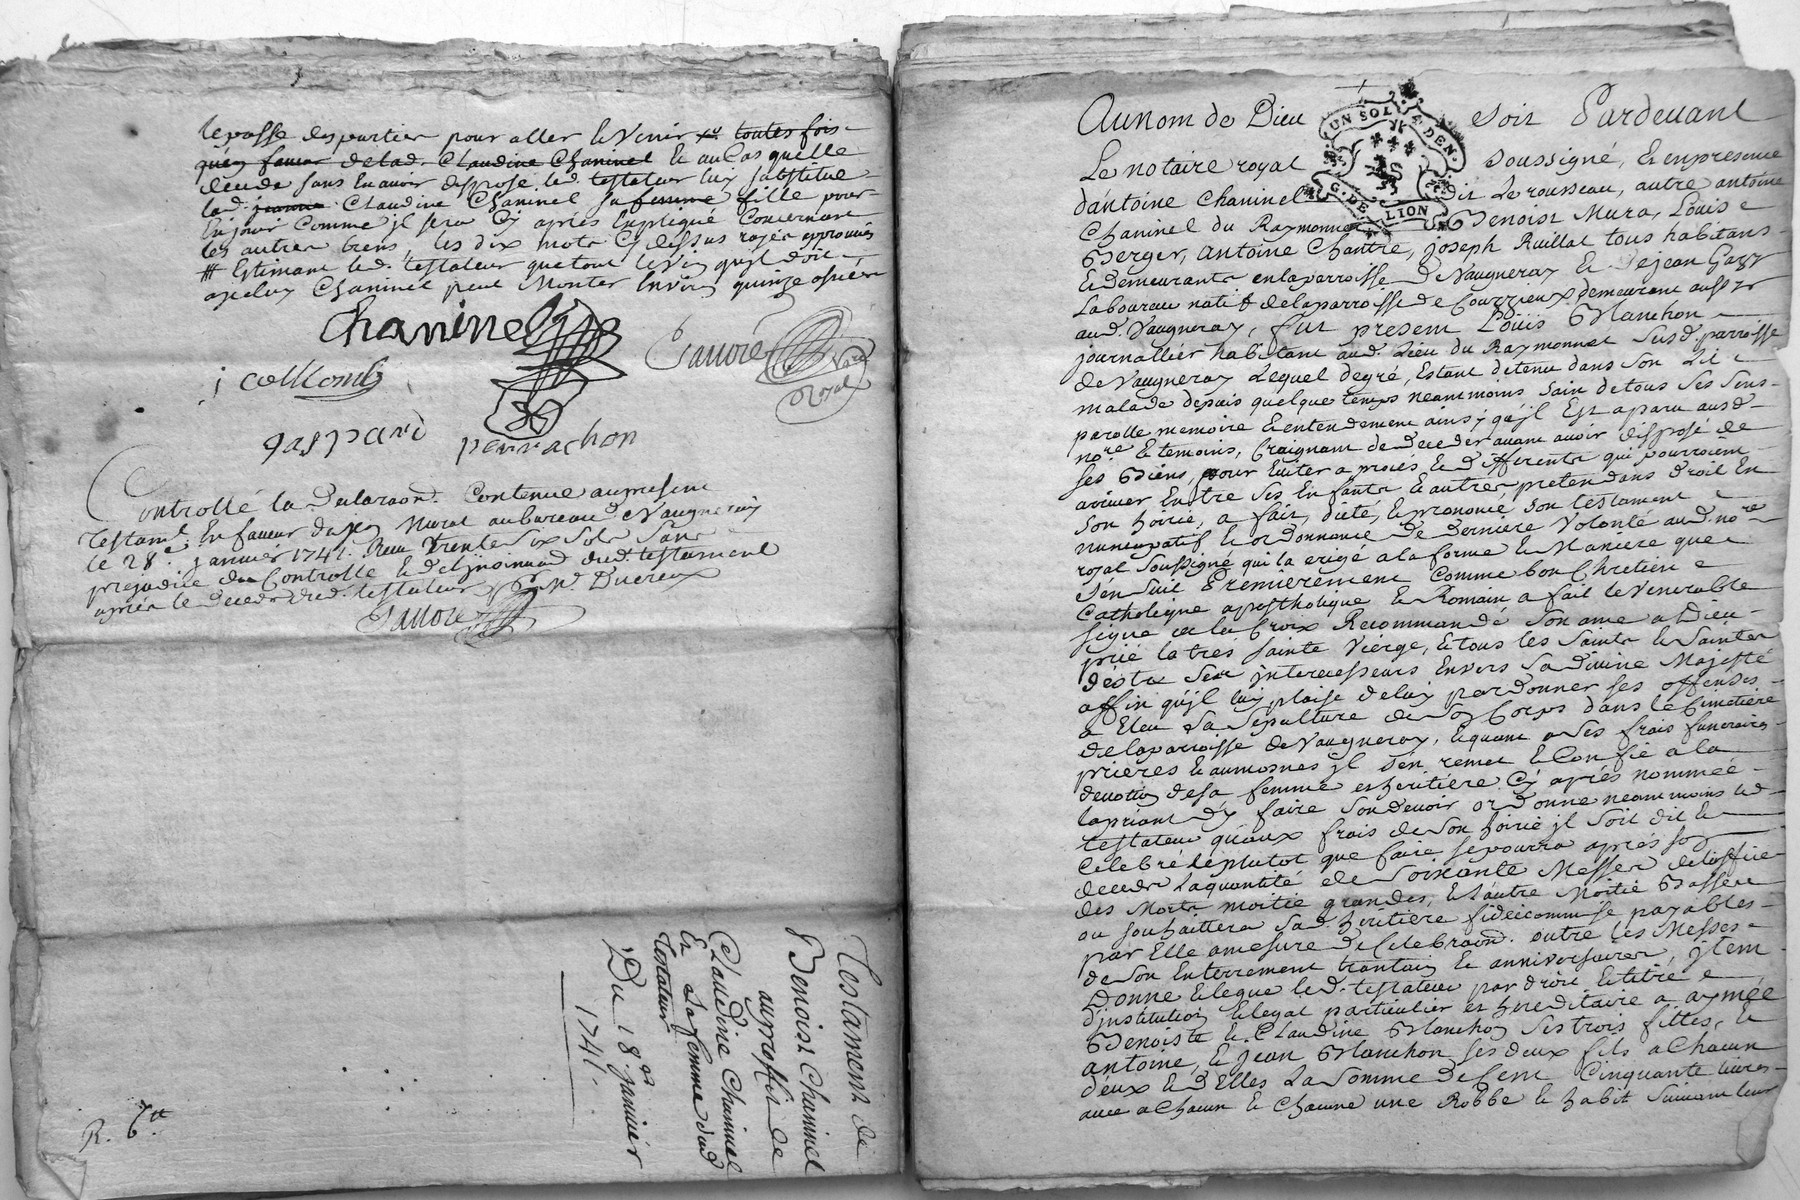 le passe des parties pour aller & venir toutes fois
faveur de lad. Claudine Chaninel & au Cas quelle
decede sans En avoir disposé led. testateur luy substitue
lad. jeanne Claudine Chaninel sa femme fille pour
En jouir Comme jl sera Cy après Expliqué Concernant
les autres biens, les dix mots Cy dessus rayés approuvés
Estimant led. testateur que tout le vin quil doit
Chaninel peut Monter Environ quinze
Chaninel
Jauvre Nre Royal
j collomb
gaspard perrachon
Controllé la Contenue au present
testamt. En faveur de Murat au bureau de Vaugneray
le 28e. janvier 1741. Receu Trente Six Sols Sans
prejudice du Controlle & de l'jnsinuaon dud. testament
après le deceds dud. testateur Ducreux
Jauvre
Testament de
Benoist Chaninel
au proffit de
Claudine Chaninel
Et sa femme dud
testateur
Du 18e janvier
1741.
R. 6
Au nom de Dieu soit Pardevant
UN SOL 4 DEN.
G. DE LION
Le notaire royal soussigné, & en presence
d'antoine Chaninel dit Le rousseau, autre antoine
Chaninel du Raymonnet Benoist Mura, Louis
Berger, antoine Chantre, joseph Ruillat tous habitans
& demeurants en la parroisse de Vaugneray & de jean Gazy
Laboureur natif de la parroisse de Courzieux demeurant aussy
aud. Vaugneray, fut present Loüis Blanchon
journallier habitant aud. Lieu du Raymonnet susd. parroisse
de Vaugneray Lequel de gré, Estant detenu dans son Lit
malade depuis quelque temps neantmoins sain de tous ses sens
parolle memoire & entendement ainsy qu'jl Est aparu aud.
nore. & temoins, Craignant de deceder avant avoir disposé de
ses Biens, pour Eviter a procés & differents qui pourroient
arriver Entre ses Enfants & autres pretendans droit En
son hoirie, a fait, dicté, & prononcé son testament
nuncupatif & ordonnance de derniere Volonté aud. nore.
royal soussigné qui la erigé a la forme & Maniere que
s'en suit Premierement Comme bon Chretien
Catholique apostholique & Romain a fait le Venerable
signe de la Croix Recommandé son ame a Dieu
prié la tres sainte Vierge, & tous les saints & saintes
d'éstre ses jntercesseurs Envers sa divine Majesté
affin qu'jl luy plaise de luy pardonner ses offenses
a Eleu sa sepulture de son Corps dans le Cimetiere
de la parroisse de Vaugneray, & quant a ses frais funeraires
prieres & aumosnes jl s'en remet & Confie a la
devotion de sa femme & heritiere Cy après nommée
la priant d'y faire son devoir ordonne neantmoins led
testateur qu'aux frais de son hoirie jl soit dit &
Celebré le plutot que faire se pourra après son
deceds la quantité de soixante Messes de l'office
des Morts moitié grandes, & l'autre Moitié Basses
ou souhaittera sad. heritiere fideicommise payables
par Elle a mesure de Celebraon. outre les Messes
de son Enterrement trantain & anniversaires, jtem
Donne & legue led. testateur par droit & titre
d'institution & legat particulier et hereditaire a aymée
Benoiste & Claudine Blanchon ses trois filles, &
antoine, & jean Blanchon ses deux fils a Chacun
d'eux & d'Elles La somme de Cent Cinquante livres
avec a Chacun & Chacune une Robbe & habit suivant leur